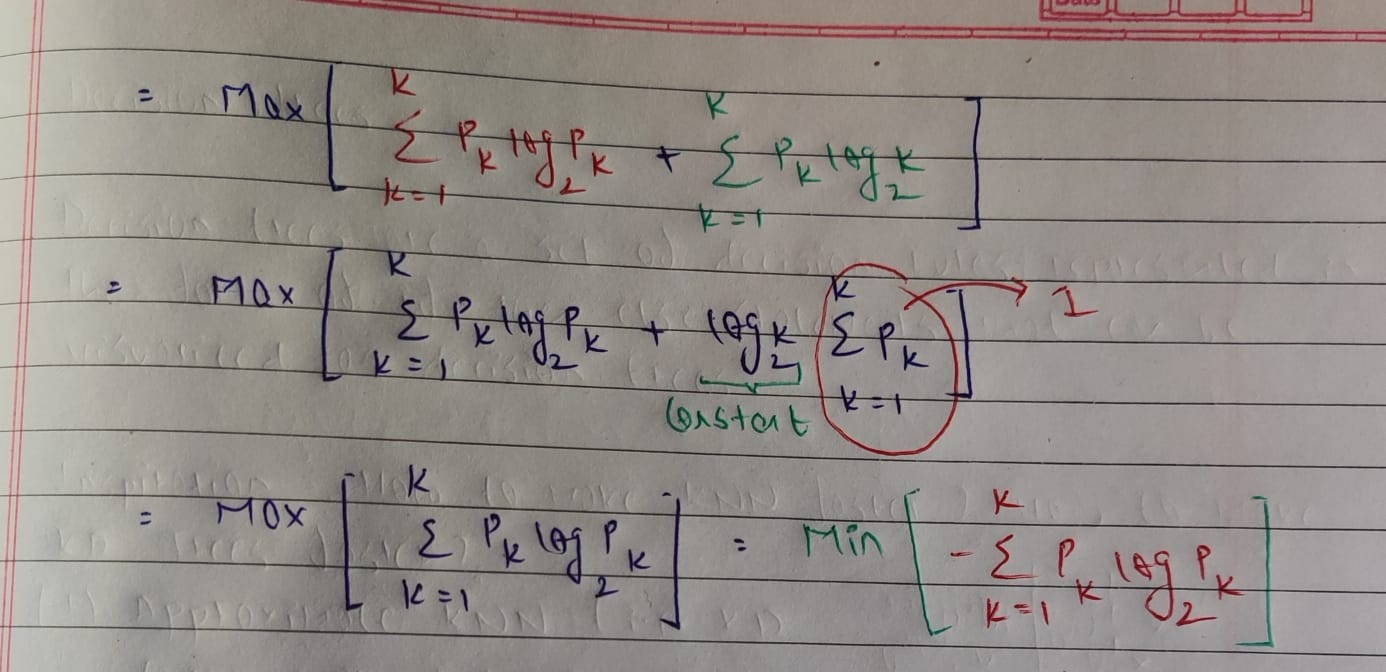 = Max [ K Σ k=1 P_k log_2 P_k + K Σ k=1 P_k log_2 K ]
= Max [ K Σ K=1 P_k log_2 P_k + log_2 K K Σ k=1 P_k ] → 1
Constant
= Max [ K Σ K=1 P_k log_2 P_k ] = Min [ - K Σ K=1 P_k log_2 P_k ]